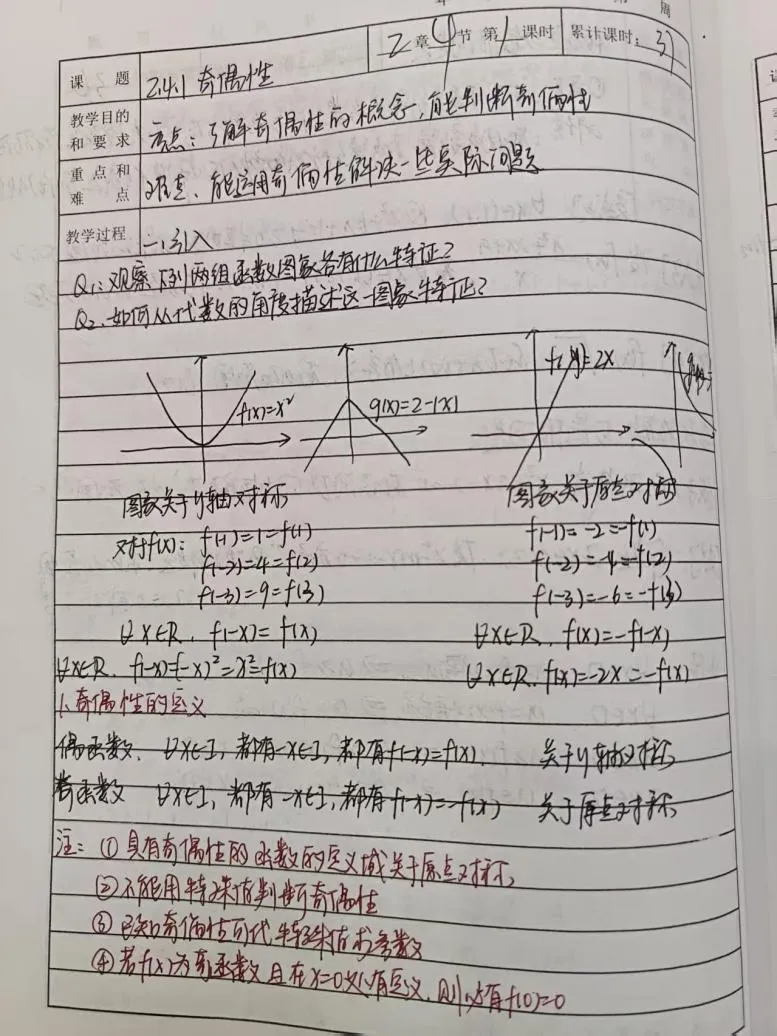 周
2 章 4 节 第 1 课时 累计课时: 3
课 题 2.4.1 奇偶性
教学目的和要求 重点: 了解奇偶性的概念, 能判断奇偶性
重点和难点 难点、能运用奇偶性解决一些实际问题
教学过程 一、引入
Q1: 观察下列两组函数图象各有什么特征?
Q2. 如何从代数的角度描述这一图象特征?
f(x)=x² g(x)=2-|x| f(x)=2x
图象关于y轴对称 图象关于原点对称
对于f(x): f(-1)=1=f(1) f(-1)=-2=-f(1)
f(-2)=4=f(2) f(-2)=-4=-f(2)
f(-3)=9=f(3) f(-3)=-6=-f(3)
∀x∈R, f(-x)=f(x) ∀x∈R, f(x)=-f(-x)
∀x∈R, f(-x)=(-x)²=x²=f(x) ∀x∈R, f(x)=-2x=-f(x)
1、奇偶性的定义
偶函数、∀x∈I, 都有-x∈I, 都有f(-x)=f(x). 关于y轴对称
奇函数 ∀x∈I, 都有-x∈I, 都有f(-x)=-f(x) 关于原点对称
注: ① 具有奇偶性的函数的定义域关于原点对称
② 不能用特殊值判断奇偶性
③ 已知奇偶性可代特殊值求参数
④ 若f(x)为奇函数且在x=0处有定义, 则必有f(0)=0